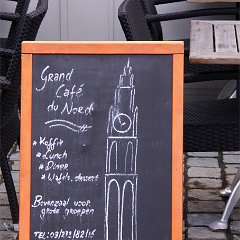 Grand
Café
du Nord
* Koffie
* Lunch
* Diner
* Wafels, dessert
Bovenzaal voor
grote groepen
TEL: